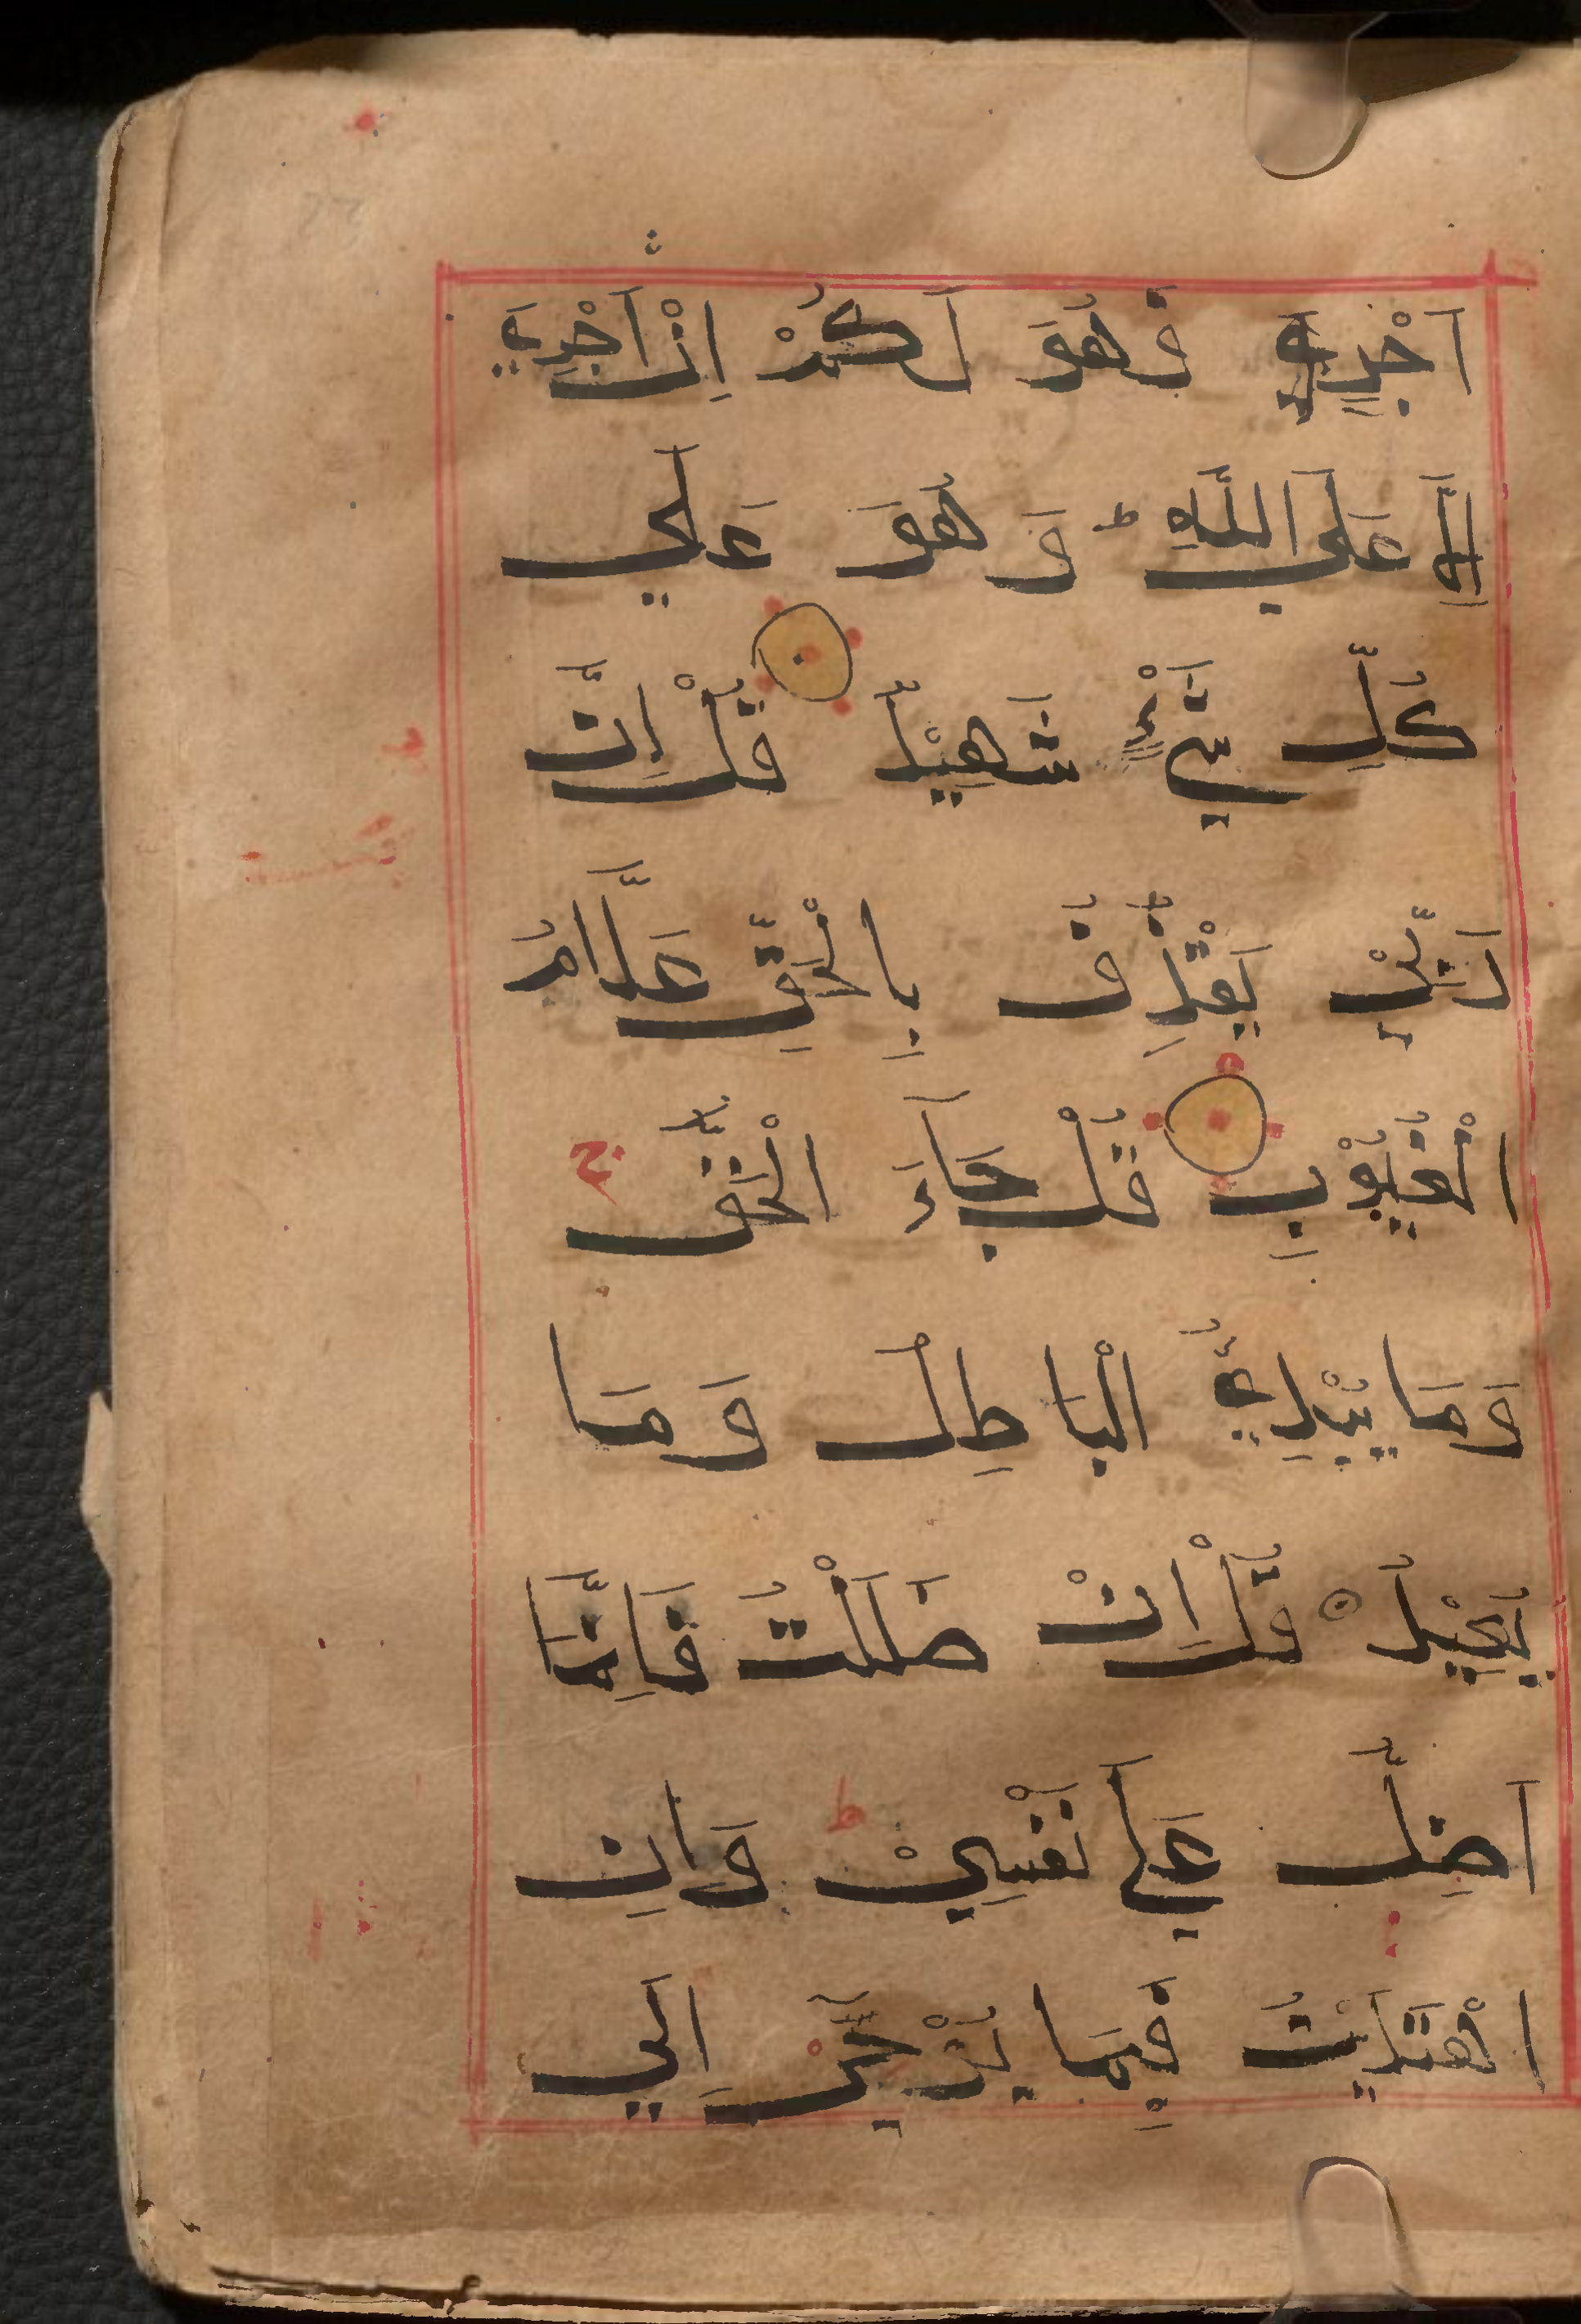 اَجْرٍ فَهُوَ لَكُمْ اِنْ اَجْرِيَ
اِلَّا عَلَي اللّٰهِ ط وَ هُوَ عَلٰي
كُلِّ شَيْءٍ شَهِيْدٌ قُلْ اِنَّ
رَبِّيْ يَقْذِفُ بِالْحَقِّ عَلَّامُ
الْغُيُوْبِ قُلْ جَآءَ الْحَقُّ ج
وَمَا يُبْدِئُ الْبَاطِلُ وَمَا
يُعِيْدُ قُلْ اِنْ ضَلَلْتُ فَاِنَّمَا
اَضِلُّ عَلٰي نَفْسِيْ ط وَاِنِ
اهْتَدَيْتُ فَبِمَا يُوْحِيْ اِلَي